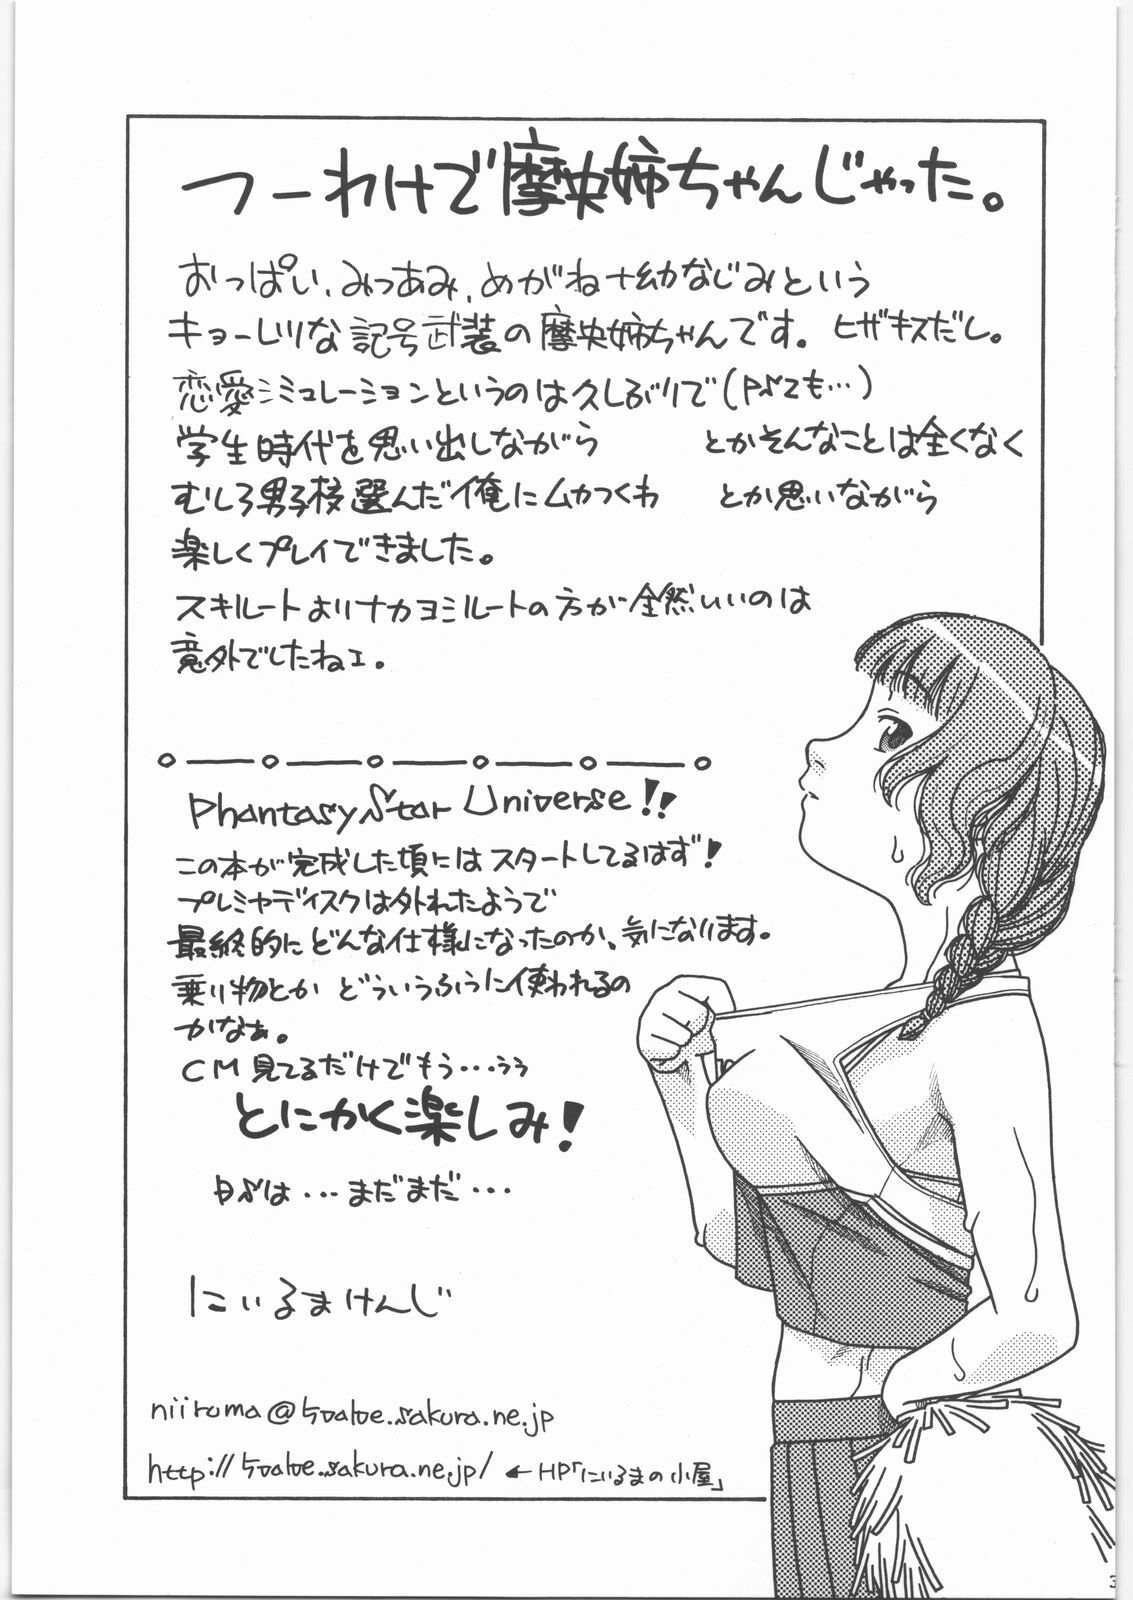 つーわけで摩央姉ちゃんじゃった。
おっぱい、みつあみ、めがね+幼なじみという
キョーレツな記号武装の摩央姉ちゃんです。ヒザキスだし。
恋愛シミュレーションというのは久しぶりで(PSZも…)
学生時代を思い出しながら とかそんなことは全くなく
むしろ男子校選んだ俺にムカつくわ とか思いながら
楽しくプレイできました。
スキルートよりナカヨシルートの方が全然いいのは
意外でしたねェ。
Phantasy Star Universe!!
この本が完成した頃にはスタートしてるはず!
プレミヤディスクは外れたようで
最終的にどんな仕様になったのか、気になります。
乗り物とか どういうふうに使われるの
かなぁ。
CM見てるだけでもう…うぅ
とにかく楽しみ!
は…まだまだ…
にいるまけんじ
niiruma@ .sakura.ne.jp
http:// .sakura.ne.jp/ ←HP「にいるまの小屋」